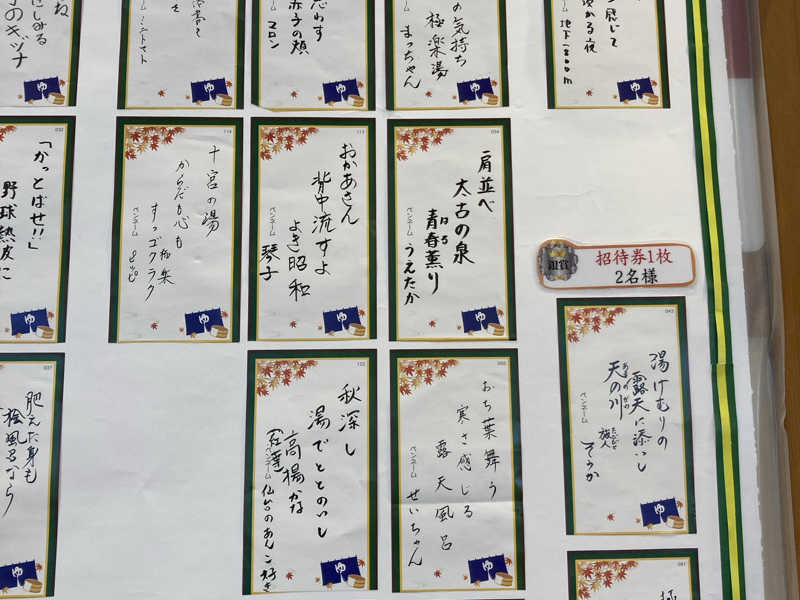 の気持ち
極楽湯
まっちゃん
赤子の頬
マロン
ミニトマト
地下1200m
032
「かっとばせ!!」
野球熱皮に
114
十宮の湯
からだも心も
すっゴクラク
極楽
ペンネーム
113
おかあさん
背中流すよ
よき昭和
ペンネーム
琴子
034
肩並べ
太古の泉
青春薫り
ペンネーム
うえたか
招待券1枚
2名様
043
湯けむりの
露天に添いし
天の川
あまのがわ
ペンネーム
旅人
そうか
037
肥えた身も
桧風呂なら
102
秋深し
湯でととのいし
高揚かな
(紅葉)
ペンネーム
仙台のあんこ好き
おち葉舞う
寒さ感じる
露天風呂
ペンネーム
せいちゃん
081
ゆ
ゆ
ゆ
ゆ
ゆ
ゆ
ゆ
ゆ
ゆ
ゆ
ゆ
ゆ